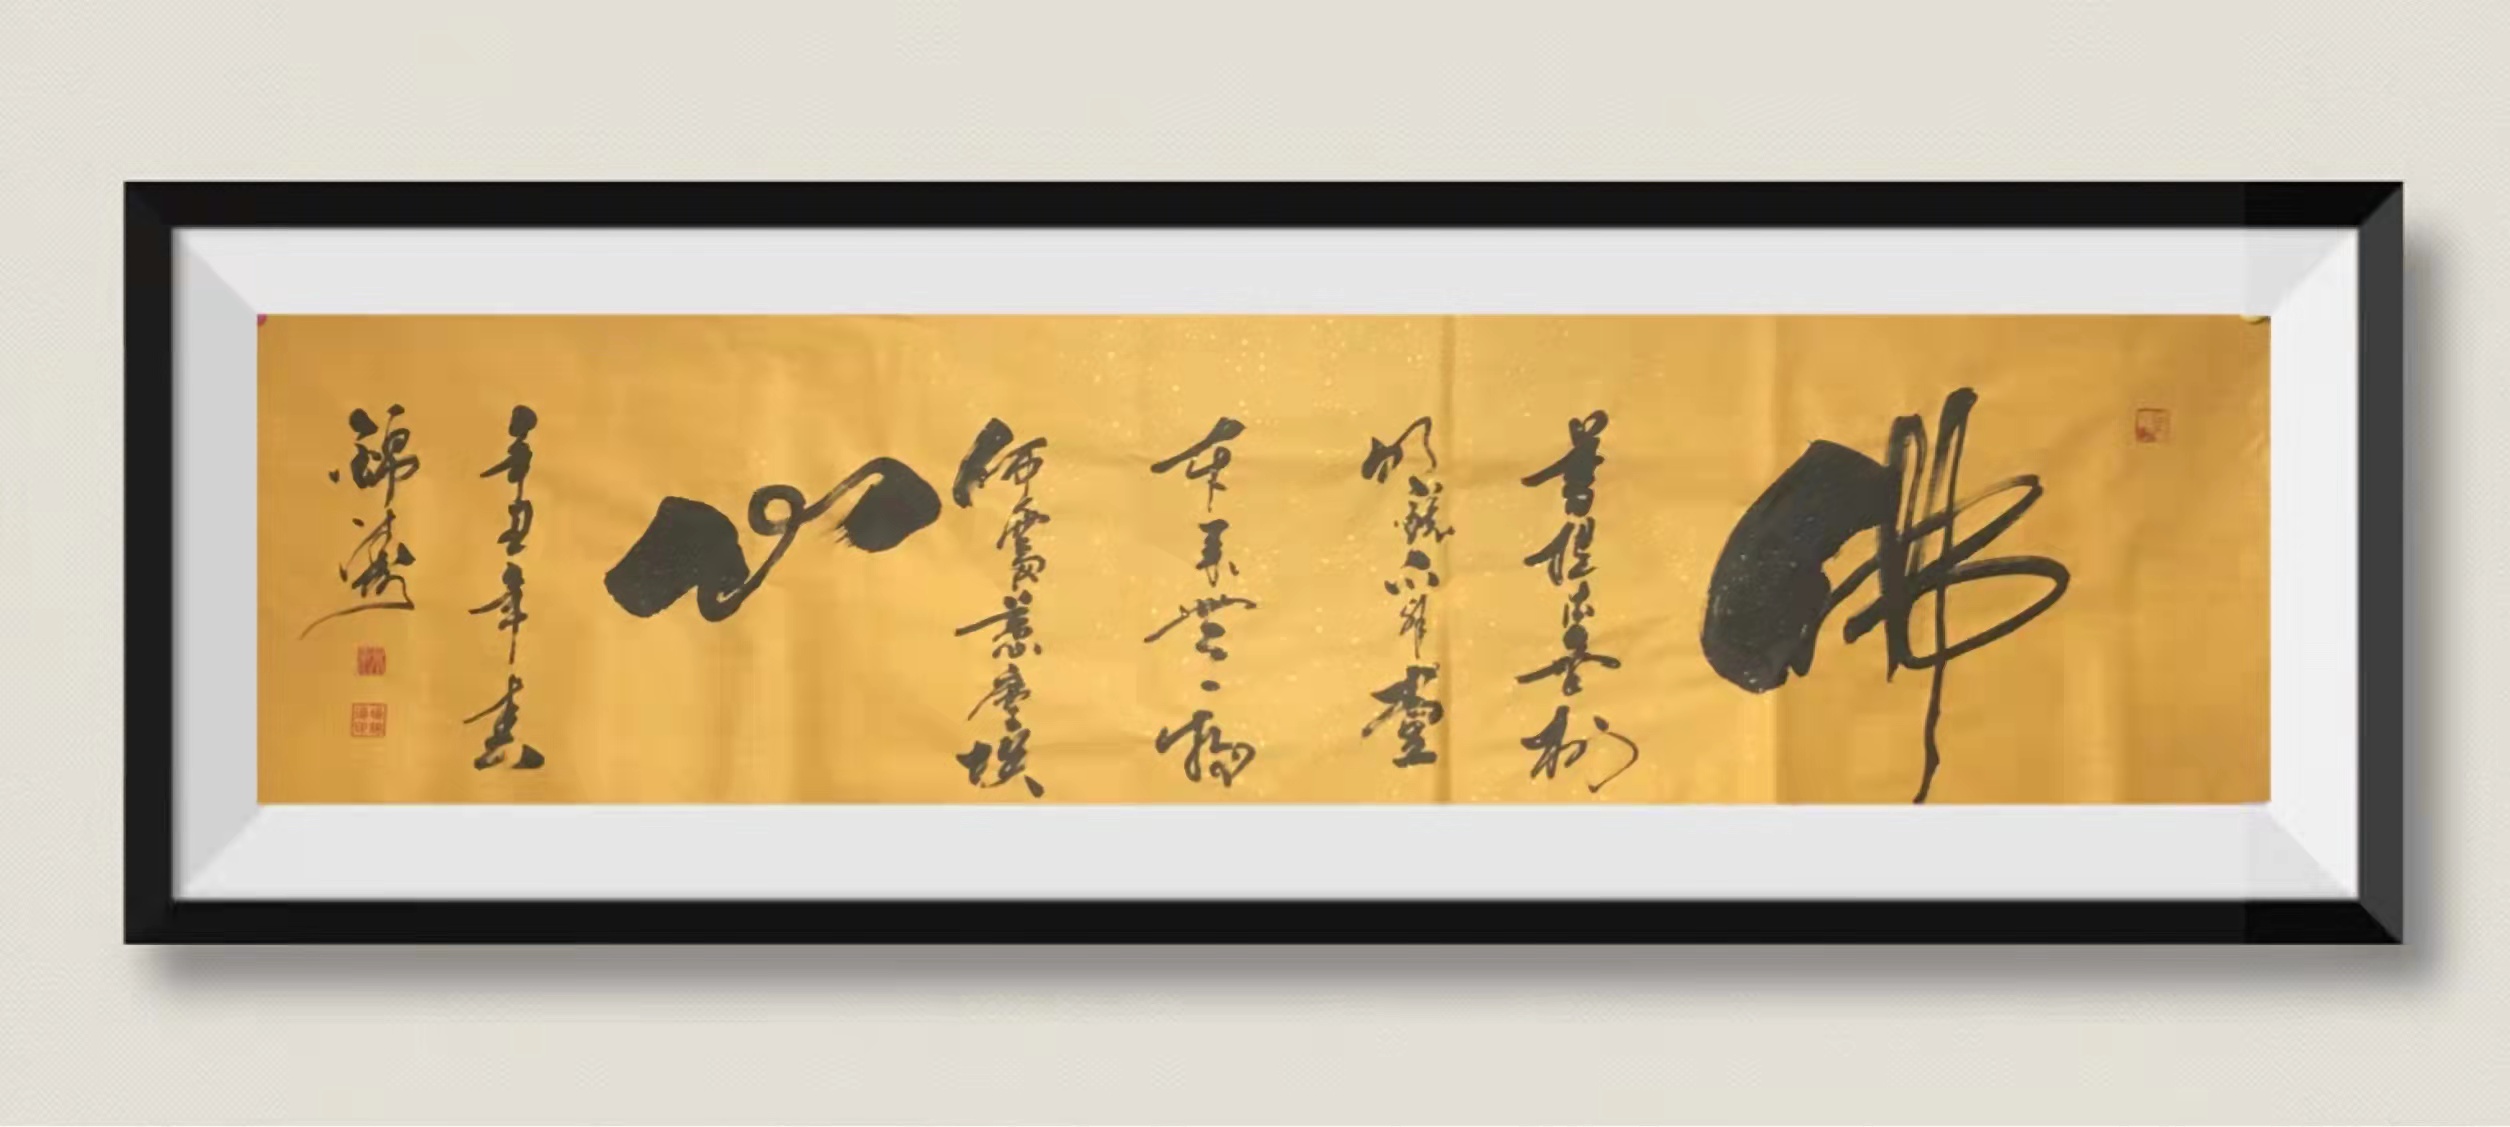 佛
菩提本無樹
明鏡亦非臺
本来無一物
何處惹塵埃
心
辛丑年書
錦